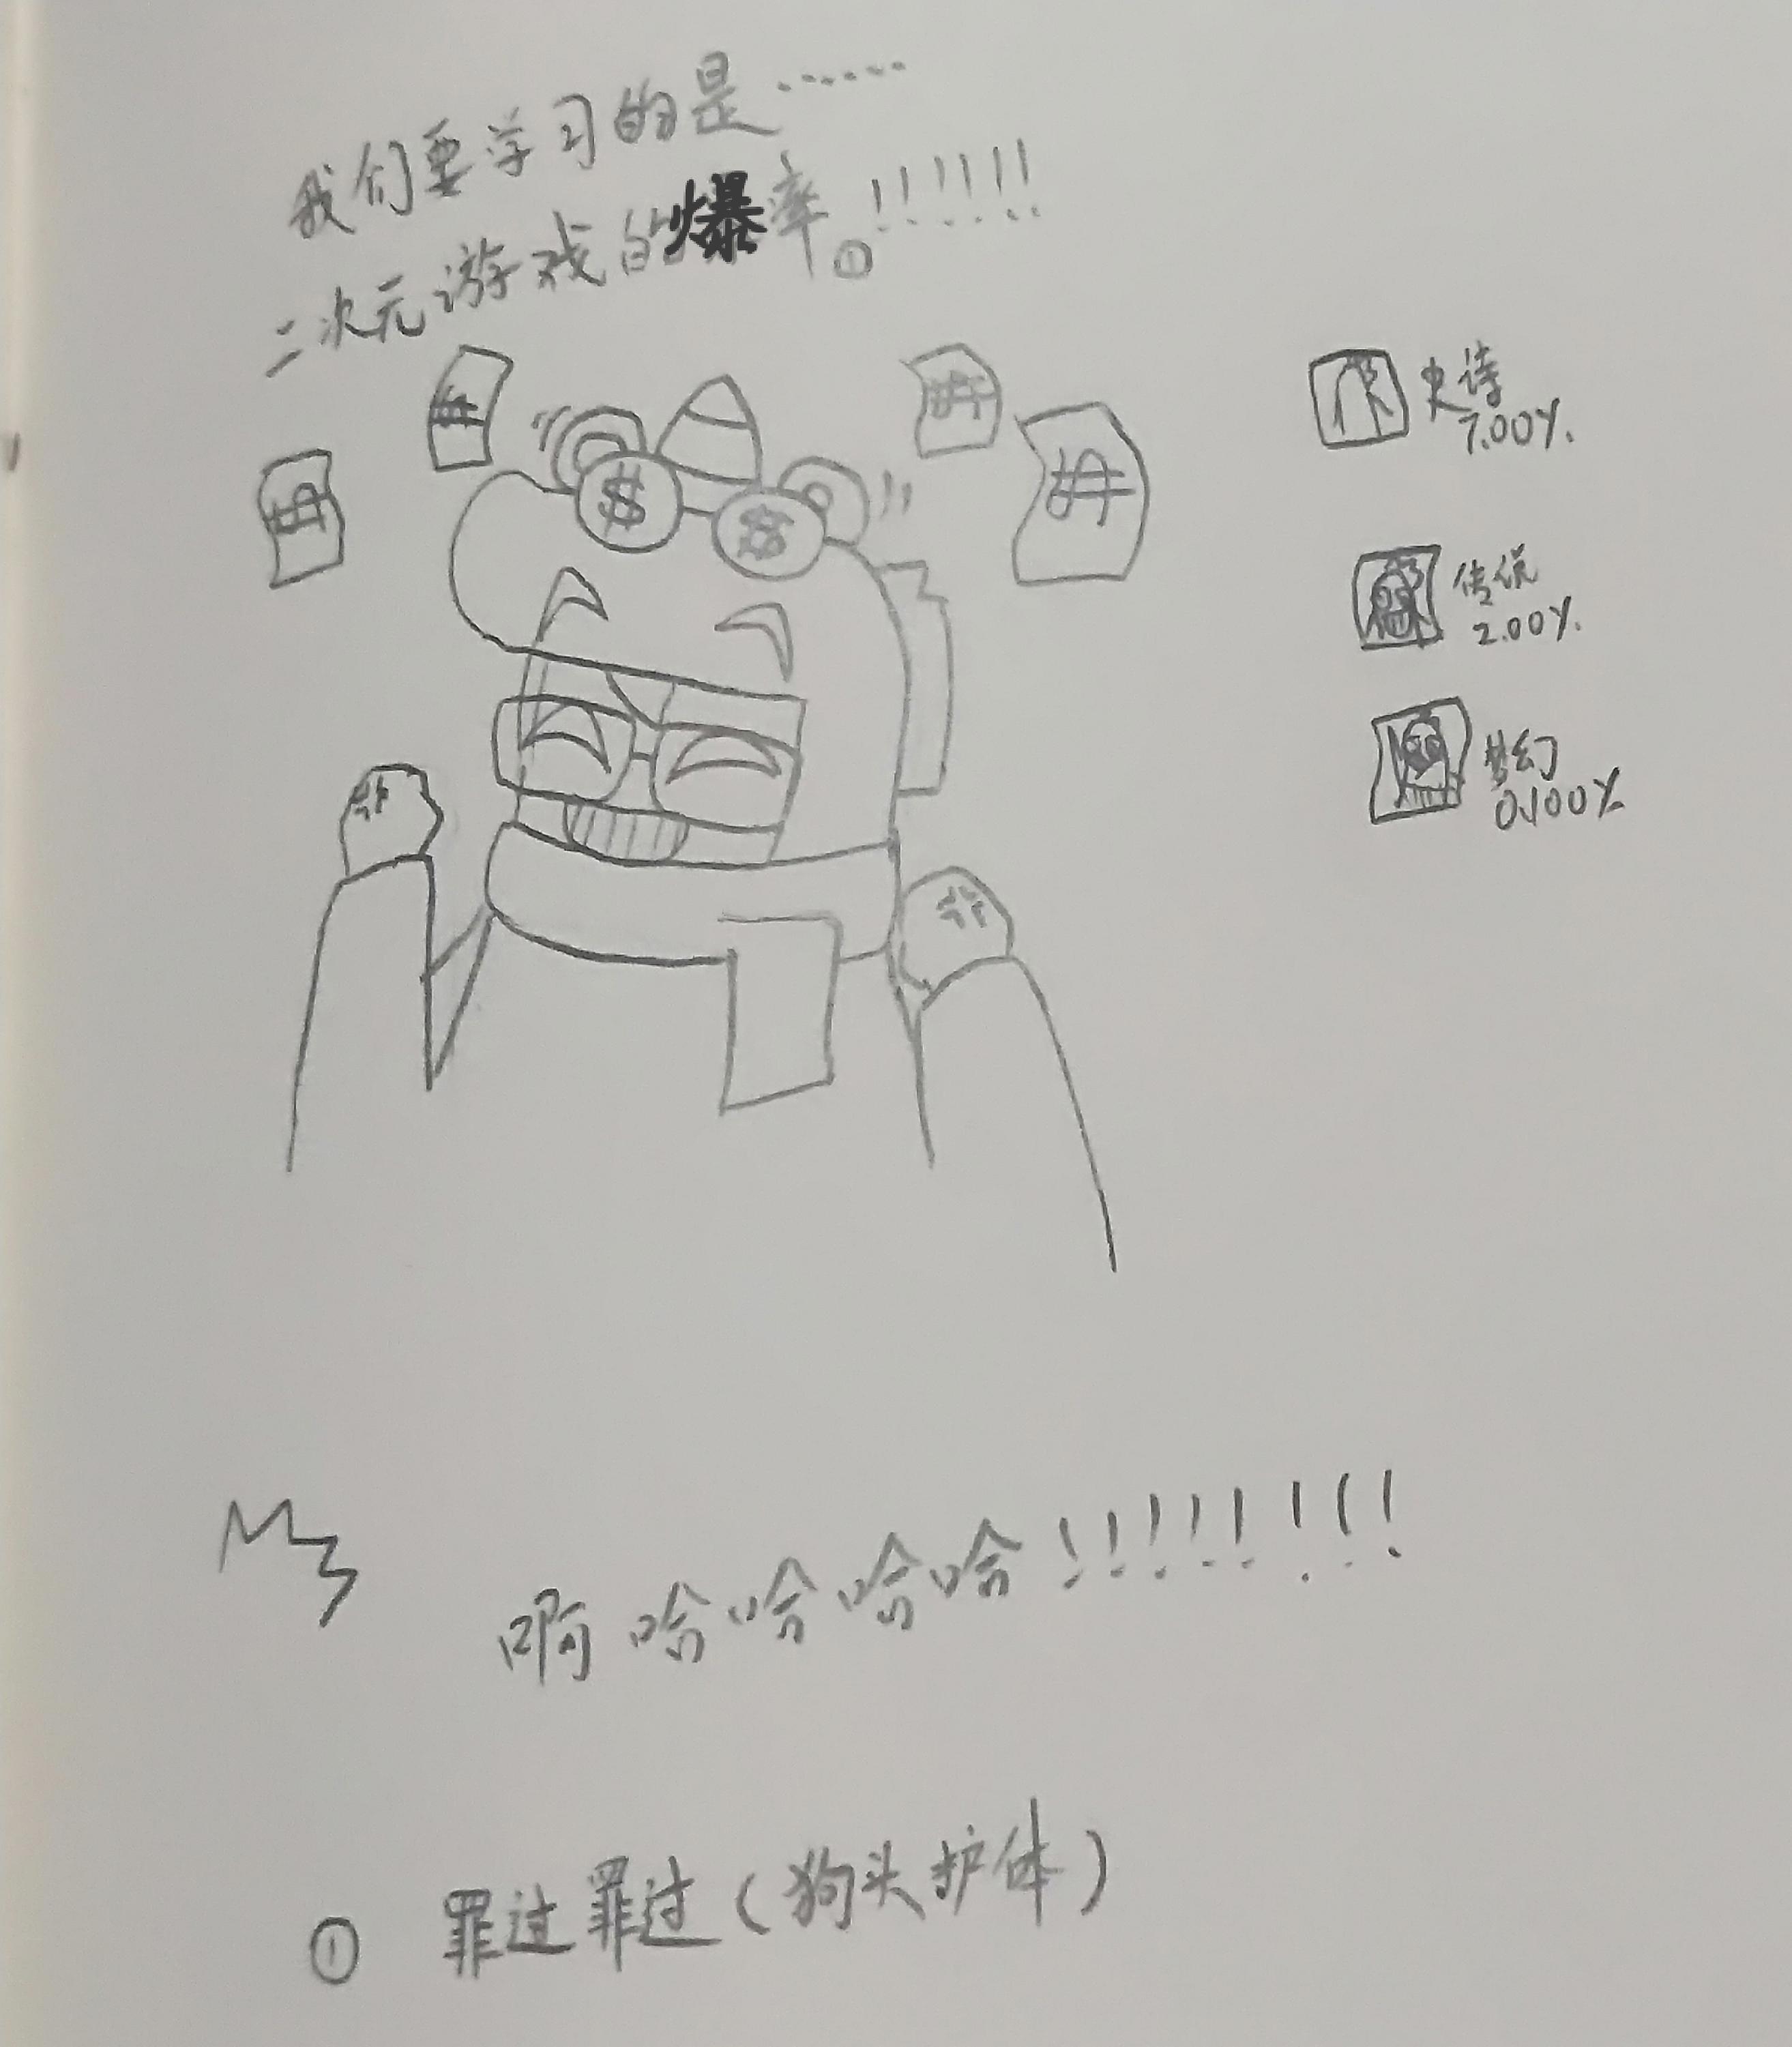 我们要学习的是……
二次元游戏的爆率①!!!!!!
$
$
$
$
$ $
史诗
7.00%
传说
2.00%
梦幻
0.100%
啊哈哈哈哈!!!!!!!!
① 罪过罪过(狗头护体)